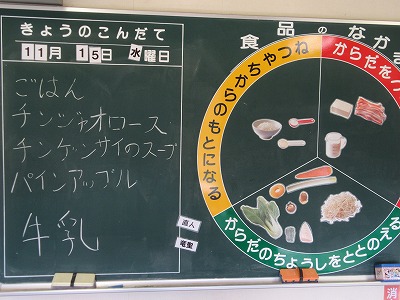 きょうのこんだて
11月 15日 水曜日
ごはん
チンジャオロース
チンゲンサイのスープ
パインアップル
牛乳
直人
竜聖
食品のなかま
ちからやねつのもとになる
からだをつ
からだのちょうしをととのえる
消